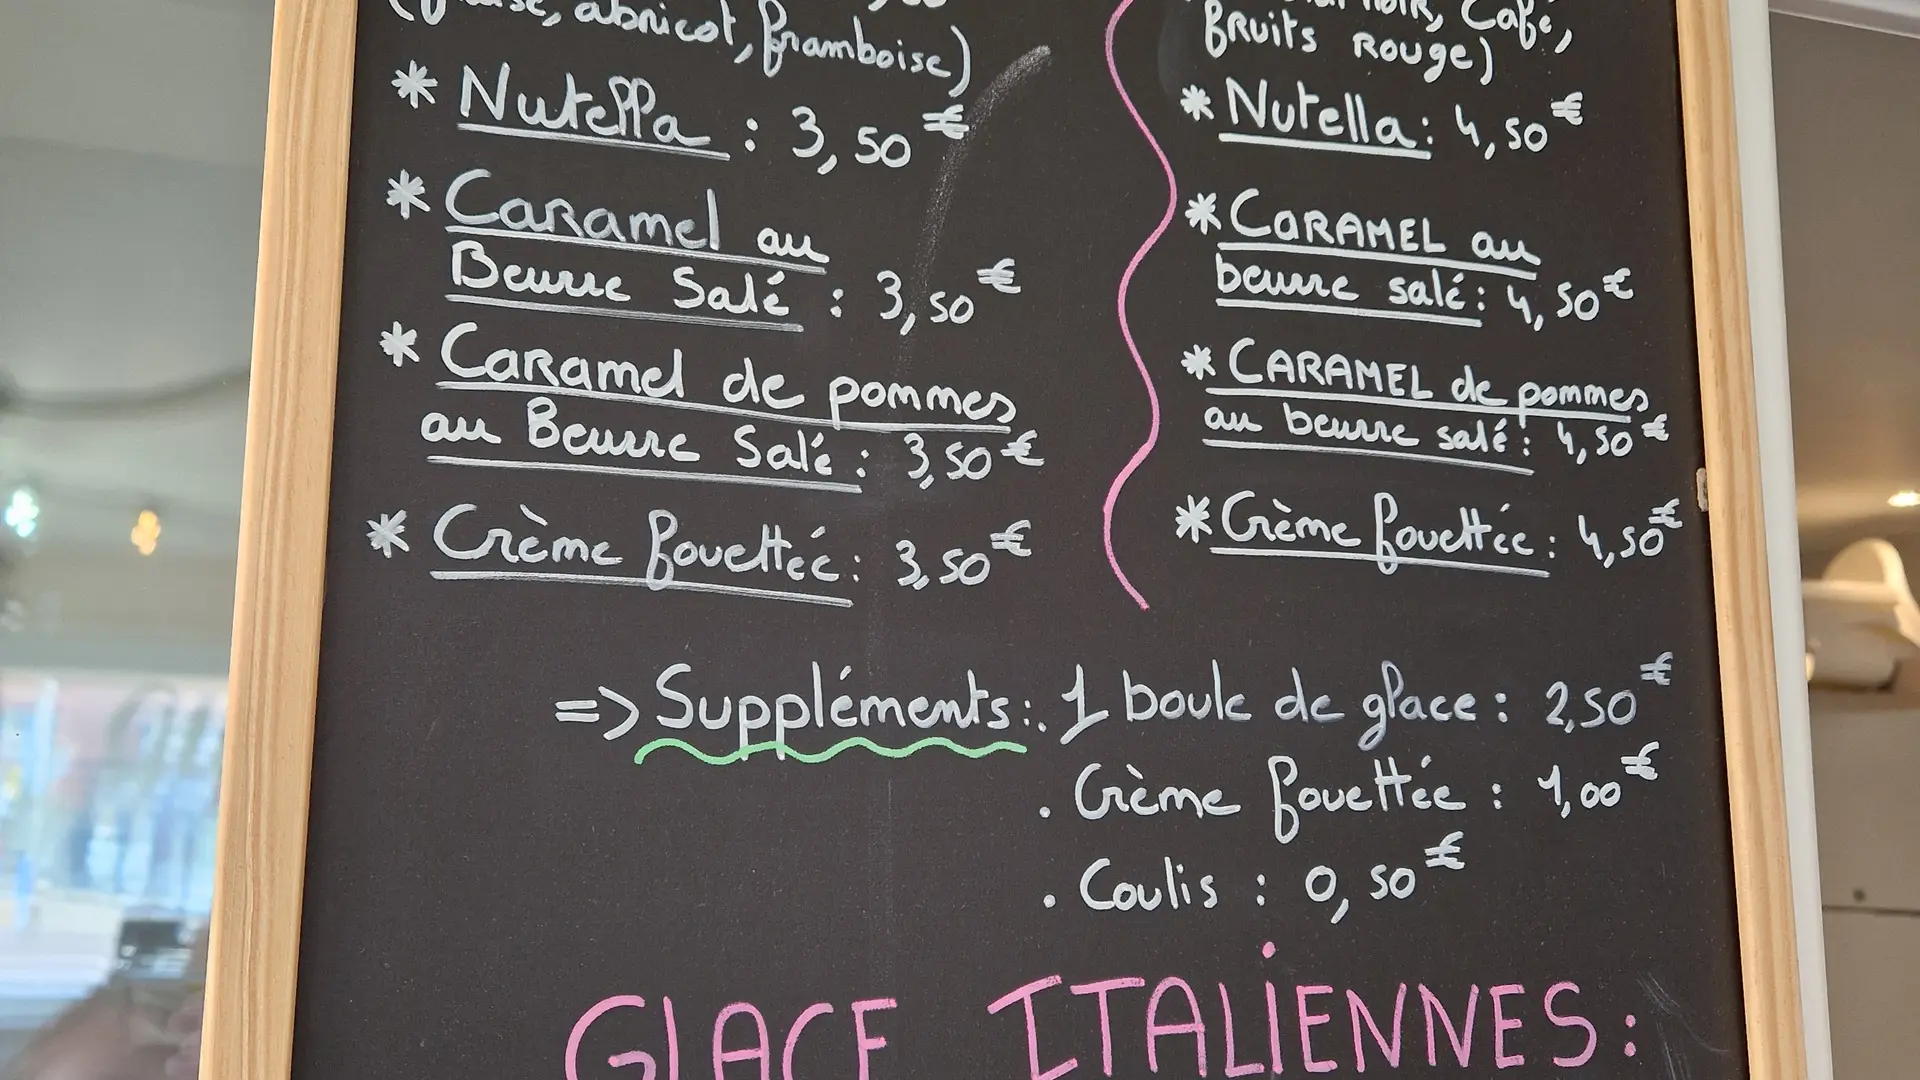 abricot, framboise)
* Nutella : 3,50€
* Caramel au
Beurre Salé : 3,50€
* Caramel de pommes
au Beurre Salé : 3,50€
* Crème fouettée : 3,50€
Café,
fruits rouge)
* Nutella : 4,50€
* CARAMEL au
beurre salé : 4,50€
* CARAMEL de pommes
au beurre salé : 4,50€
* Crème fouettée : 4,50€
=> Suppléments : . 1 boule de glace : 2,50€
. Crème fouettée : 1,00€
. Coulis : 0,50€
GLACE ITALIENNES :